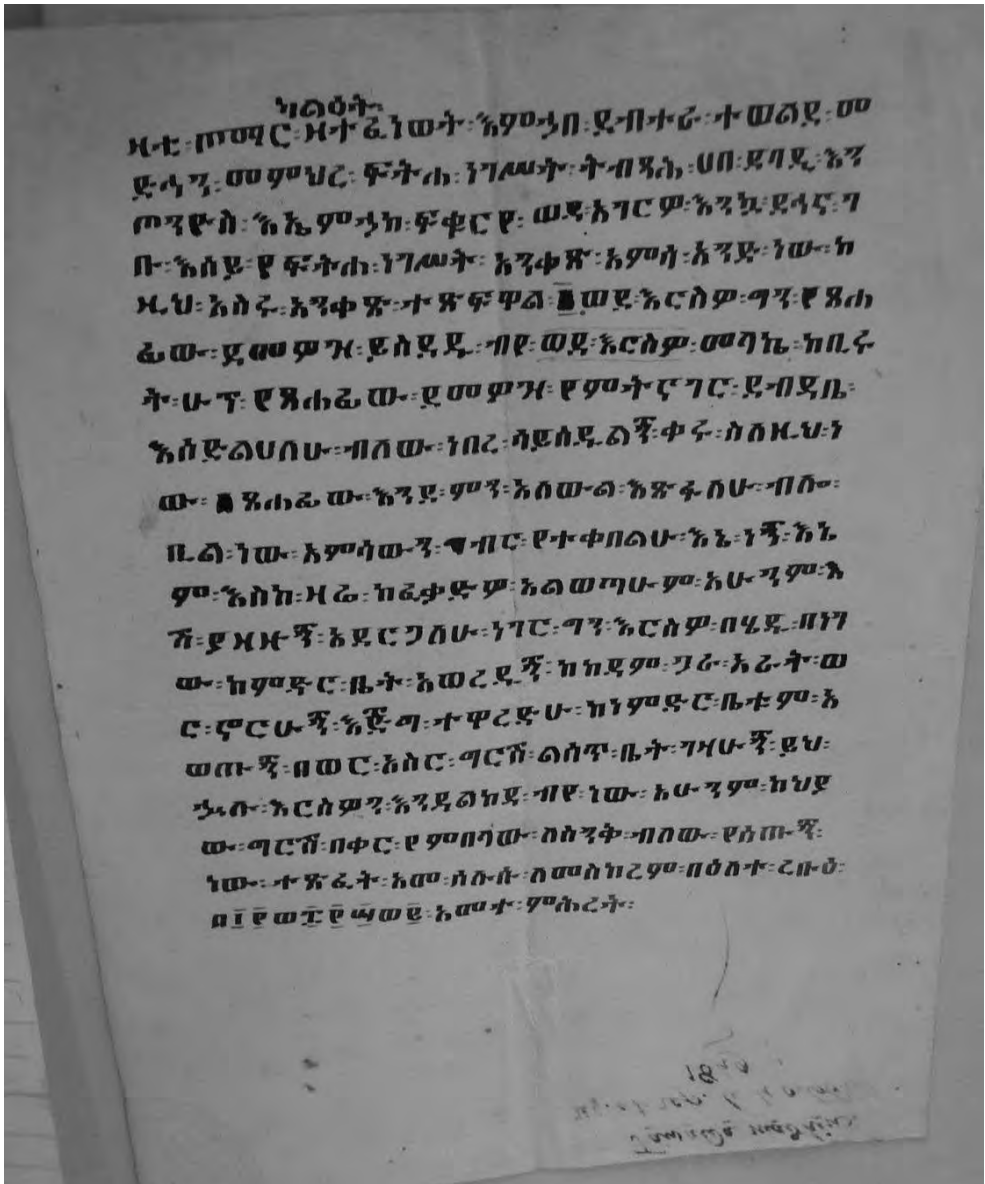 ካልዕት
ዛቲ፡ጦማር፡ዛተፈነወት፡እምኀበ፡ደብተራ፡ተወልደ፡መ
ድኅን፡መምህረ፡ፍትሐ፡ነገሥት፡ትብጻሕ፡ሀበ፡ደባዲ፡እን
ጦንዮስ፡
ቡ፡እሰይ፡የፍትሐ፡ነገሥት፡አንቀጽ፡አምሳ፡አንድ፡ነው፡ከ
ዚህ፡አስሩ፡አንቀጽ፡ተጽፍዋል፡ወደ፡እርስዎ፡ግን፡የጻሐ
ፊው፡ደመዎዝ፡ይስደዱ፡ብየ፡ወደ፡እርስዎ፡መላኬ፡ከቢሩ
ት፡ሁኖ፡የጻሐፊው፡ደመዎዝ፡የምትሆ ገር፡ደብዳቤ፡
እሰድልሀለሁ፡ብለው፡ነበረ፡ሳይሰዱልኝ፡ቀሩ፡ስለዚህ፡ነ
ው፡ጻሐፊው፡እንደ፡ምን፡አለውል፡እጽፋለሁ፡ብሎ፡
ቢል፡ነው፡አምሳውን፡ብር፡የተቀበልሁ፡እኔ፡ነኝ፡እኔ
ም፡እስከ፡ዛሬ፡ከፈቃድዎ፡አልወጣሁም፡አሁንም፡እ
ሽ፡ያዘዙኝ፡አደርጋለሁ፡ነገር፡ግን፡እርስዎ፡በሄዱ፡በነገ
ው፡ከምድር፡ቤት፡አወረዱኝ፡ከከዳም፡ጋራ፡አራት፡ወ
ር፡ኖርሁኝ፡እጅግ፡ተዋረድሁ፡ከነምድር፡ቤቱም፡አ
ወጡኝ፡በወር፡አስር፡ግርሽ፡ልሰጥ፡ቤት፡ገዛሁኝ፡ይህ፡
ኁሉ፡እርስዎን፡እንዳልከዳ፡ብየ፡ነው፡አሁንም፡ከህያ
ው፡ግርሽ፡በቀር፡የምበላው፡ለስንቅ፡ብለው፡የሰጡኝ፡
ነው፡ተጽፈት፡አመ፡ሰሉሱ፡ለመስከረም፡በዕለተ፡ረቡዕ፡
በ፲፻ወ፰፻፷ወ፪፡አመተ፡ምሕረት፡